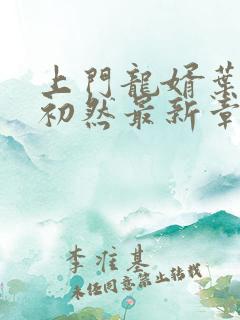 上門龍婿葉
初然最新章
李准基
未经同意禁止转载